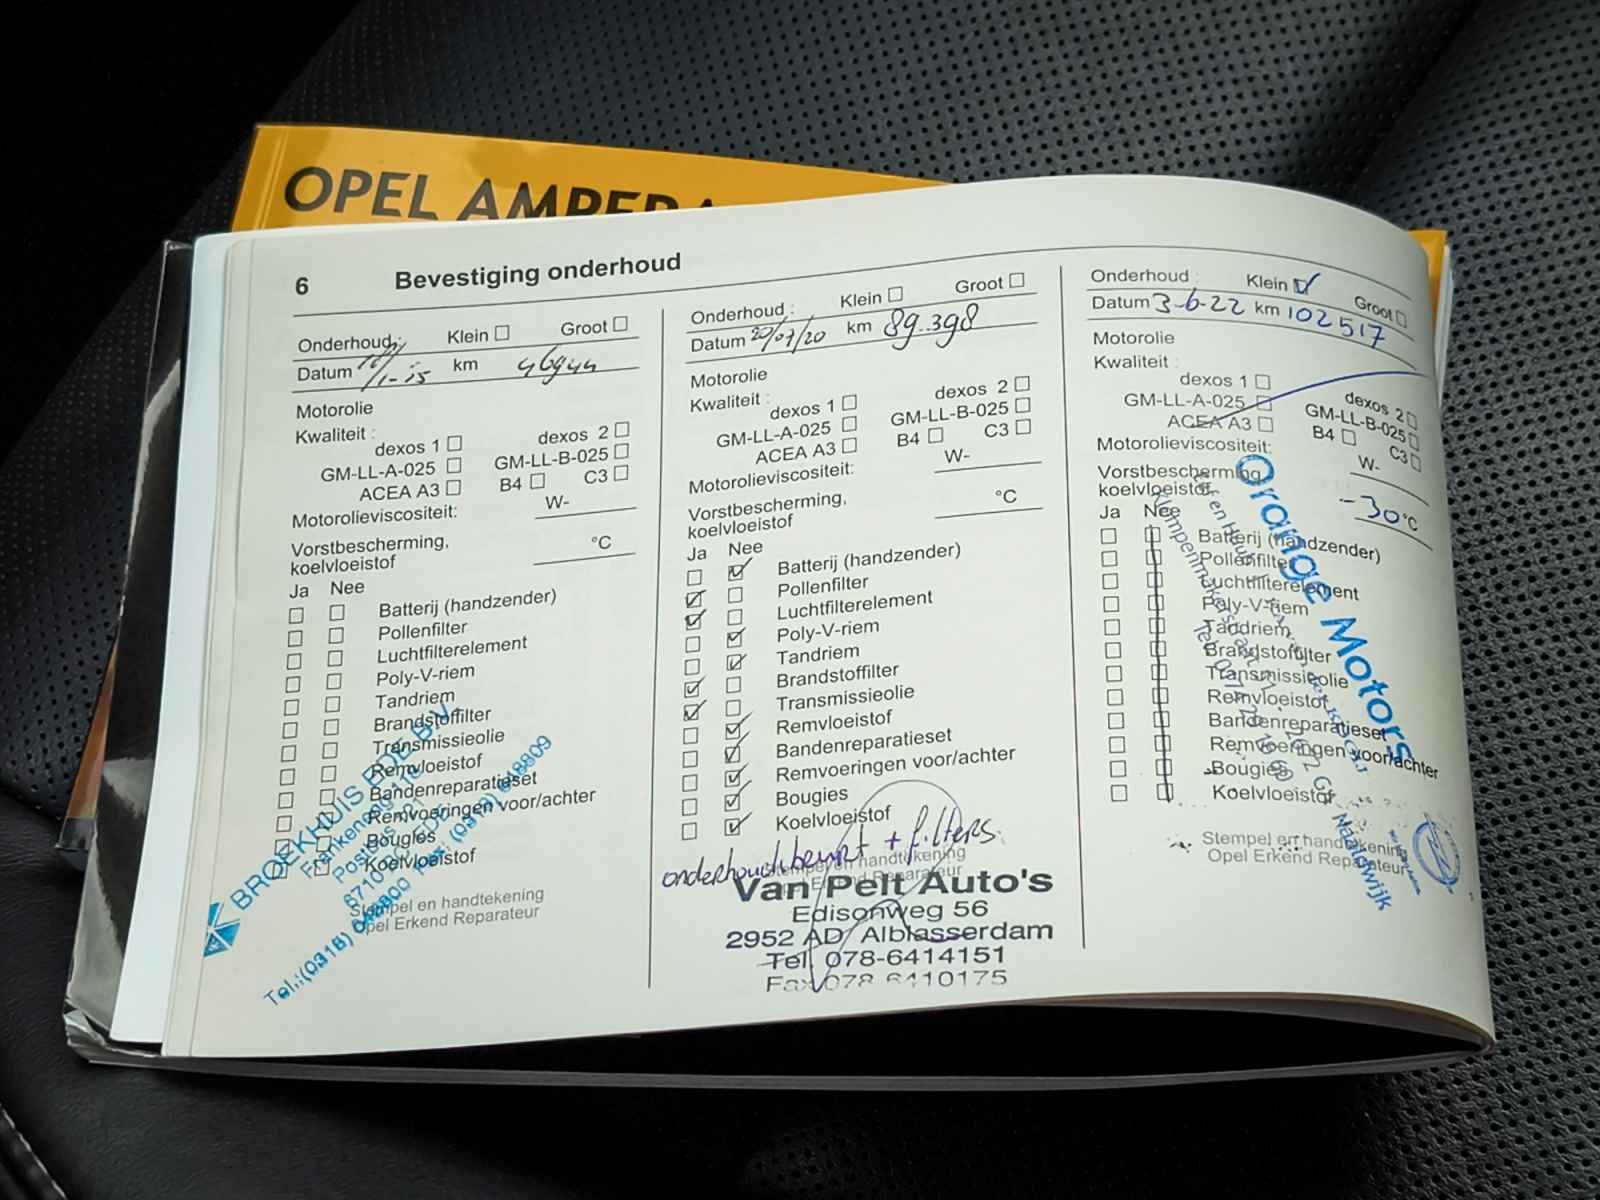 OPEL AMPERA
6 Bevestiging onderhoud
Onderhoud: Klein Groot
Datum km
Motorolie
Kwaliteit :
dexos 1 dexos 2
GM-LL-A-025 GM-LL-B-025
ACEA A3 B4 C3
Motorolieviscositeit: W-
Vorstbescherming, °C
koelvloeistof
Ja Nee
Batterij (handzender)
Pollenfilter
Luchtfilterelement
Poly-V-riem
Tandriem
Brandstoffilter
Transmissieolie
Remvloeistof
Bandenreparatieset
Remvoeringen voor/achter
Bougies
Koelvloeistof
Stempel en handtekening
Opel Erkend Reparateur
BROEKHUIS EDE B.V.
Frankeneng
Postbus
6710
Onderhoud : Klein Groot
Datum 20/07/20 km 89.398
Motorolie
Kwaliteit :
dexos 1 dexos 2
GM-LL-A-025 GM-LL-B-025
ACEA A3 B4 C3
Motorolieviscositeit: W-
Vorstbescherming, °C
koelvloeistof
Ja Nee
Batterij (handzender)
Pollenfilter
Luchtfilterelement
Poly-V-riem
Tandriem
Brandstoffilter
Transmissieolie
Remvloeistof
Bandenreparatieset
Remvoeringen voor/achter
Bougies
Koelvloeistof
onderhoudsbeurt + filters.
Stempel en handtekening
Opel Erkend Reparateur
Van Pelt Auto's
Edisonweg 56
2952 AD Alblasserdam
Tel. 078-6414151
Fax 078 6410175
Onderhoud : Klein Groot
Datum 3-6-22 km 102517
Motorolie
Kwaliteit :
dexos 1 dexos 2
GM-LL-A-025 GM-LL-B-025
ACEA A3 B4 C3
Motorolieviscositeit: W-
Vorstbescherming, -30 °C
koelvloeistof
Ja Nee
Batterij (handzender)
Pollenfilter
Luchtfilterelement
Poly-V-riem
Tandriem
Brandstoffilter
Transmissieolie
Remvloeistof
Bandenreparatieset
Remvoeringen voor/achter
Bougies
Koelvloeistof
Stempel en handtekening
Opel Erkend Reparateur
Orange Motors
Naaldwijk